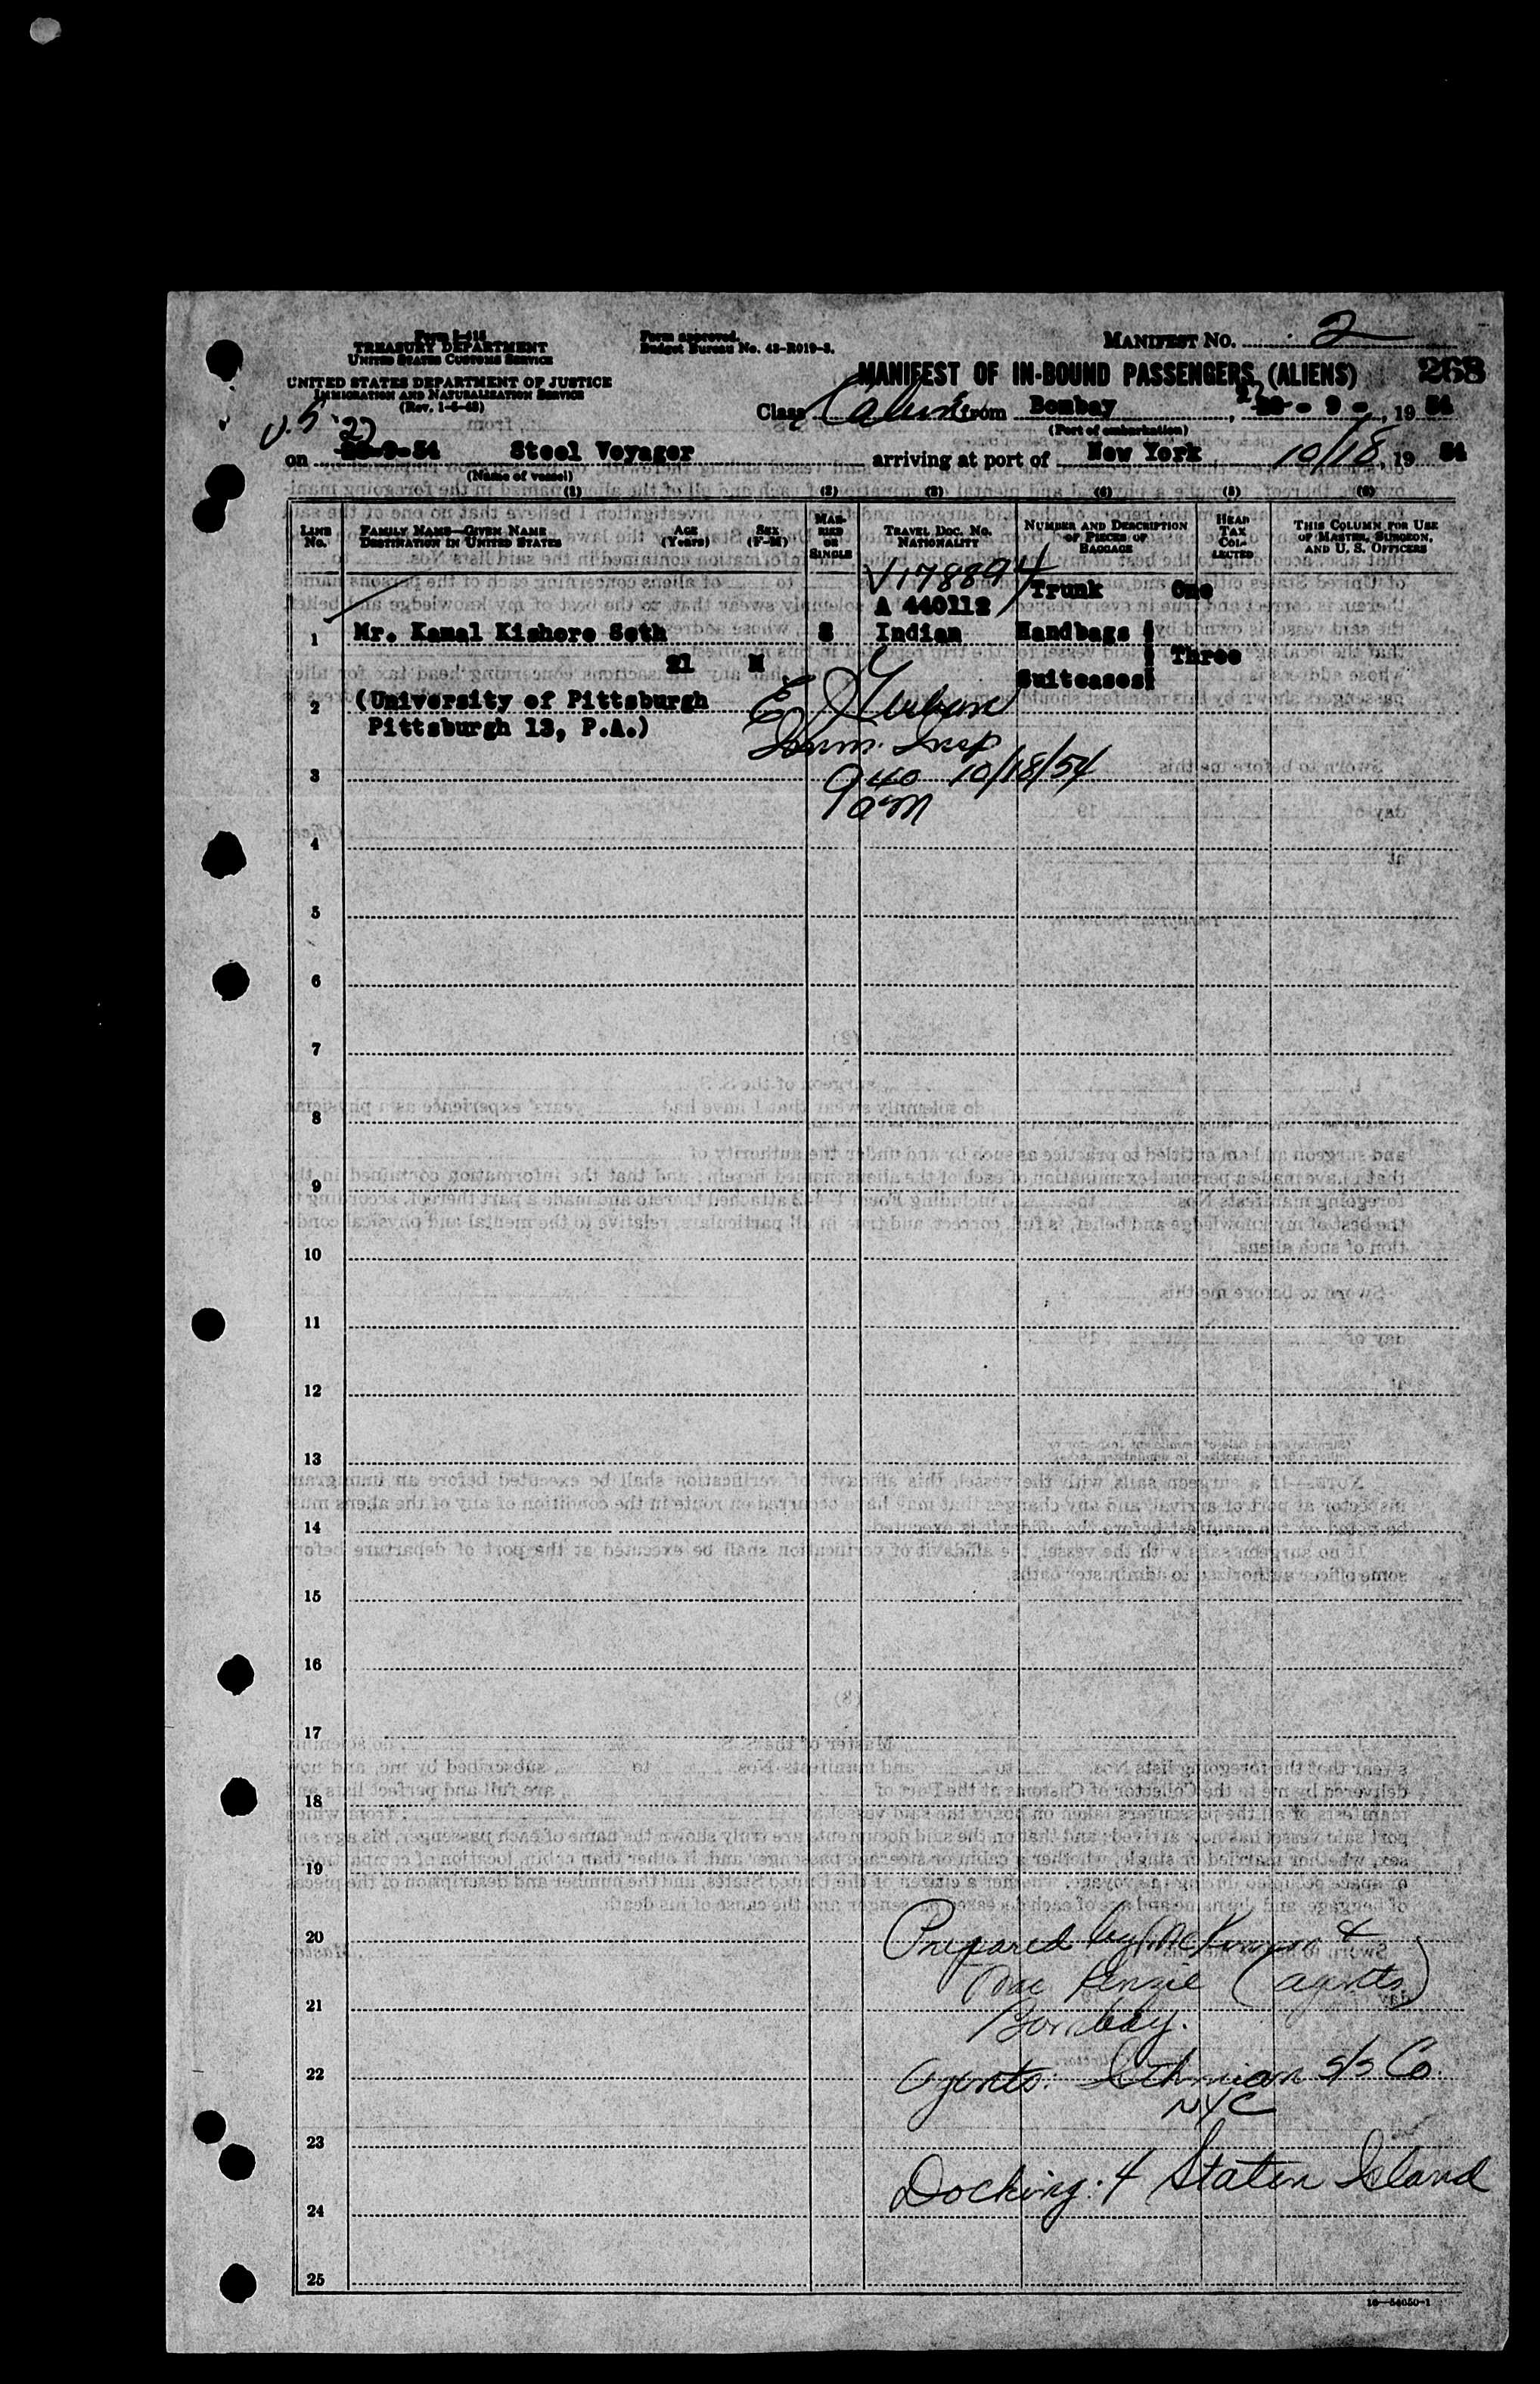 Form I-415
TREASURY DEPARTMENT
UNITED STATES CUSTOMS SERVICE
UNITED STATES DEPARTMENT OF JUSTICE
IMMIGRATION AND NATURALIZATION SERVICE
(Rev. 1-5-48)
Form approved.
Budget Bureau No. 43-R019-3.
MANIFEST NO. 2
MANIFEST OF IN-BOUND PASSENGERS (ALIENS) 268
Class Cabin from Bombay, - 9 -, 19 54
(Port of embarkation)
U.S. 27
on -9-54 Steel Voyager arriving at port of New York 10/18, 19 54
(Name of vessel)
(1) (2) (3) (4) (5) (6)
LINE NO.
FAMILY NAME—GIVEN NAME
DESTINATION IN UNITED STATES
AGE (Years)
SEX (F-M)
MARRIED OR SINGLE
TRAVEL DOC. NO.
NATIONALITY
NUMBER AND DESCRIPTION OF PIECES OF BAGGAGE
HEAD TAX COLLECTED
THIS COLUMN FOR USE OF MASTER, SURGEON, AND U. S. OFFICERS
V178894
A 440112 Trunk One
1 Mr. Kamal Kishore Seth S Indian Handbags
21 M Three
Suitcases
2 (University of Pittsburgh
Pittsburgh 13, P.A.)
Imm. Insp
3 9 40 10/18/54
am
4
5
6
7
8
9
10
11
12
13
14
15
16
17
18
19
20 Prepared by McKinnon &
Mac Kenzie (agents)
21
Bombay.
22 Agents: Isthmian S/S Co.
NYC
23
Docking: 4 Staten Island
24
25
16—54050-1